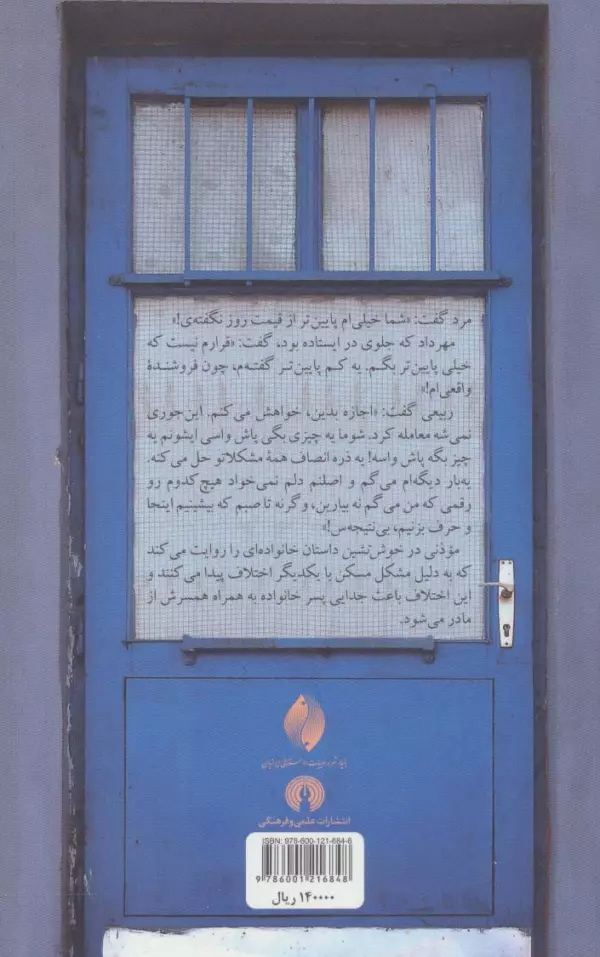 مرد گفت: «شما خیلی‌ام پایین‌تر از قیمت روز نگفته‌ی!»
مهرداد که جلوی در ایستاده بود، گفت: «قرارم نیست که
خیلی پایین‌تر بگم. یه کم پایین‌تر گفته‌م، چون فروشندهٔ
واقعی‌ام!»
ربیعی گفت: «اجازه بدین، خواهش می‌کنم. این‌جوری
نمی‌شه معامله کرد. شوما یه چیزی بگی پاش واسی ایشونم یه
چیز بگه پاش واسه! یه ذره انصاف همهٔ مشکلاتو حل می‌کنه.
یه‌بار دیگه‌ام می‌گم و اصلنم دلم نمی‌خواد هیچ‌کدوم رو
رقمی که من می‌گم نه بیارین، وگرنه تا صبم که بیشینیم اینجا
و حرف بزنیم، بی‌نتیجه‌س!»
مؤذنی در خوش‌نشین داستان خانواده‌ای را روایت می‌کند
که به دلیل مشکل مسکن با یکدیگر اختلاف پیدا می‌کنند و
این اختلاف باعث جدایی پسر خانواده به همراه همسرش از
مادر می‌شود.
بنیاد شعر و ادبیات داستانی ایرانیان
انتشارات علمی و فرهنگی
ISBN: 978-600-121-684-6
9 786001 216848
۱۴۰۰۰۰ ریال